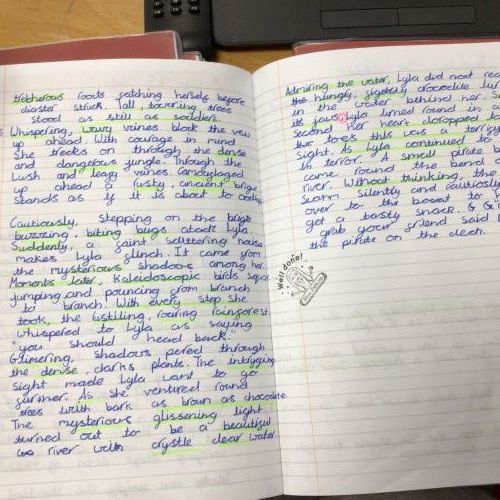 trecherous roots catching herself before
diaster struck. Tall, towering, trees
stood as still as soldiers.
Whispering, wavy vines block the view
up ahead. With courage in mind
She treeks on through the dense
and dangerous jungle. Through the
lush and leagy vines. Camouflaged
up ahead a rusty, ancient brigde
stands as if it is about to
Cautiously, stepping on the bright
buzzing, biting bugs atack Lyla.
Suddenly, a faint scuttering noise
makes Lyla flinch. It came from
the mysterious shadows among her.
Moments later, Kaleidoscopic birds
jumping and pouncing from branch
to branch. With every step she
took, the wistiling, roaring rainforest
whispered to Lyla as saying
"you should head back."
Glimering, shadows pered through
the dense, darks plants. The intryging
sight made Lyla want to go
further. As she ventured round
trees with bark as broun as chocolate.
The mysterious glissening light
turned out to be a beautiful
river with crystle clear water
Admiring the water, Lyla did not
the hungry, sightely crocodile
in the water behind her.
its jaws, Lyla turned round in
second her hears doropped
two toe's this was a
sight. As Lyla continued to
in terror. A small pirate
came round the bend
river. Without thinking, the
swam silently and cautiously
over to the boat to
get a tasty snack.
grab your friend said
the pirate on the deck.
Well done!